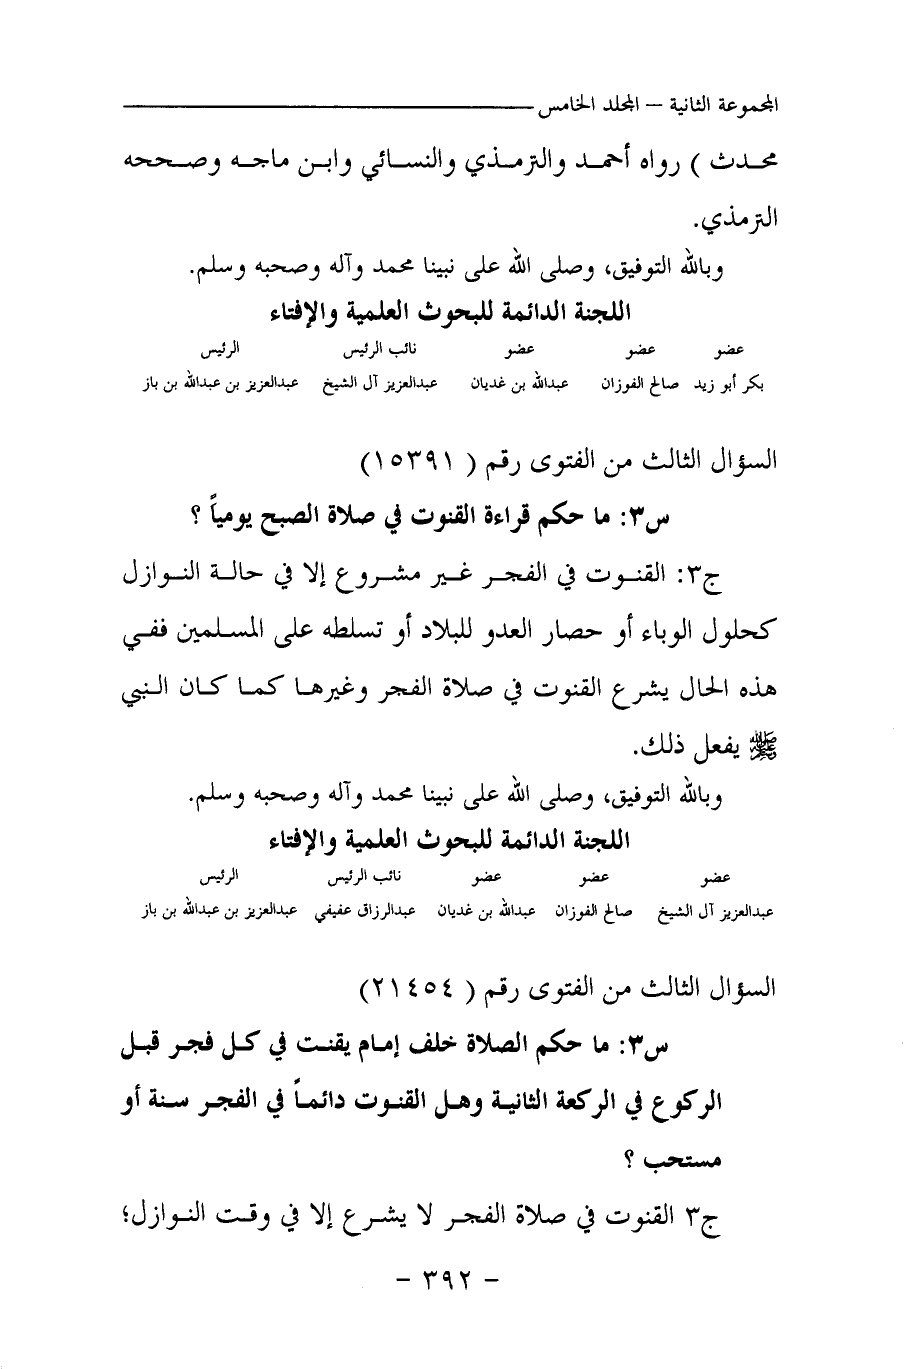 المجموعة الثانية – المجلد الخامس
محدث ) رواه أحمد والترمذي والنسائي وابن ماجه وصححه
الترمذي.
وبالله التوفيق، وصلى الله على نبينا محمد وآله وصحبه وسلم.
اللجنة الدائمة للبحوث العلمية والإفتاء
عضو عضو عضو نائب الرئيس الرئيس
بكر أبو زيد صالح الفوزان عبدالله بن غديان عبدالعزيز آل الشيخ عبدالعزيز بن عبدالله بن باز
السؤال الثالث من الفتوى رقم ( ١٥٣٩١)
س٣: ما حكم قراءة القنوت في صلاة الصبح يومياً ؟
ج٣: القنوت في الفجر غير مشروع إلا في حالة النوازل
كحلول الوباء أو حصار العدو للبلاد أو تسلطه على المسلمين ففي
هذه الحال يشرع القنوت في صلاة الفجر وغيرها كما كان النبي
ﷺ يفعل ذلك.
وبالله التوفيق، وصلى الله على نبينا محمد وآله وصحبه وسلم.
اللجنة الدائمة للبحوث العلمية والإفتاء
عضو عضو عضو نائب الرئيس الرئيس
عبدالعزيز آل الشيخ صالح الفوزان عبدالله بن غديان عبدالرزاق عفيفي عبدالعزيز بن عبدالله بن باز
السؤال الثالث من الفتوى رقم ( ٢١٤٥٤)
س٣: ما حكم الصلاة خلف إمام يقنت في كل فجر قبل
الركوع في الركعة الثانية وهل القنوت دائماً في الفجر سنة أو
مستحب ؟
ج٣ القنوت في صلاة الفجر لا يشرع إلا في وقت النوازل؛
– ٣٩٢ –